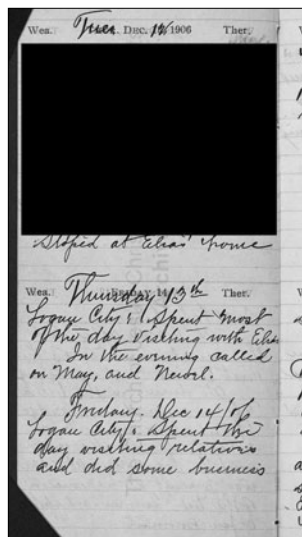 Wea. Tues. Dec. 12 1906 Ther.
Stoped at Elias' home
Wea. Thursday 13th Ther.
Logan City: Spent most
of the day visiting with Elias
In the evening called
on May, and Newel.
Friday. Dec 14/06
Logan City: Spent the
day visiting relatives
and did some business